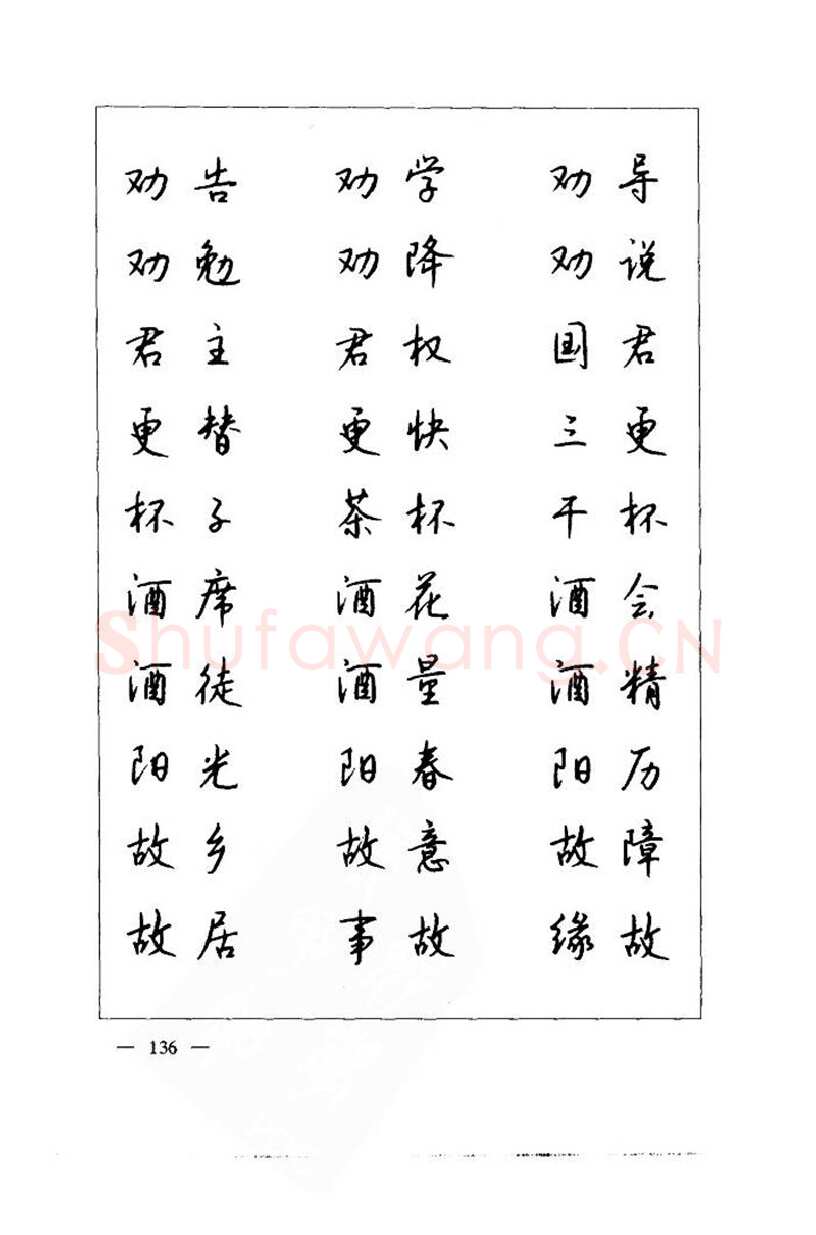 劝告 劝学 劝导
劝勉 劝降 劝说
君主 君权 国君
更替 更快 三更
杯子 茶杯 干杯
酒席 酒花 酒会
酒徒 酒量 酒精
阳光 阳春 阳历
故乡 故意 故障
故居 事故 缘故
Shufawang.CN
— 136 —